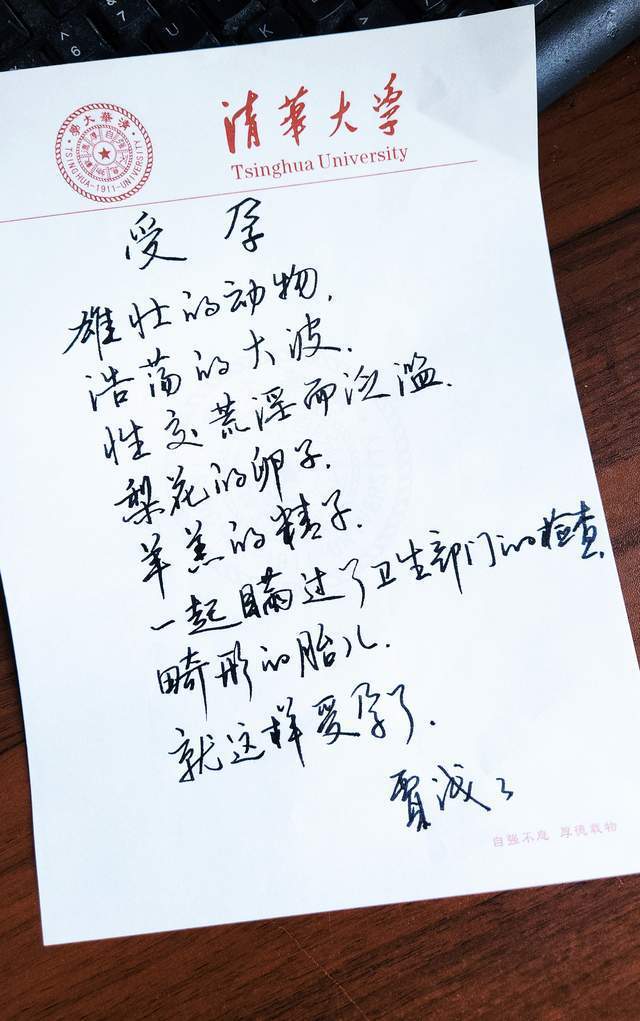 清华大学
Tsinghua University
清華大學
TSINGHUA-1911-UNIVERSITY
受孕
雄壮的动物，
浩荡的大波，
性交荒淫而泛滥，
梨花的卵子，
羊羔的精子，
一起瞒过了卫生部门的检查，
畸形的胎儿，
就这样受孕了．
贾浅浅
自强不息 厚德载物